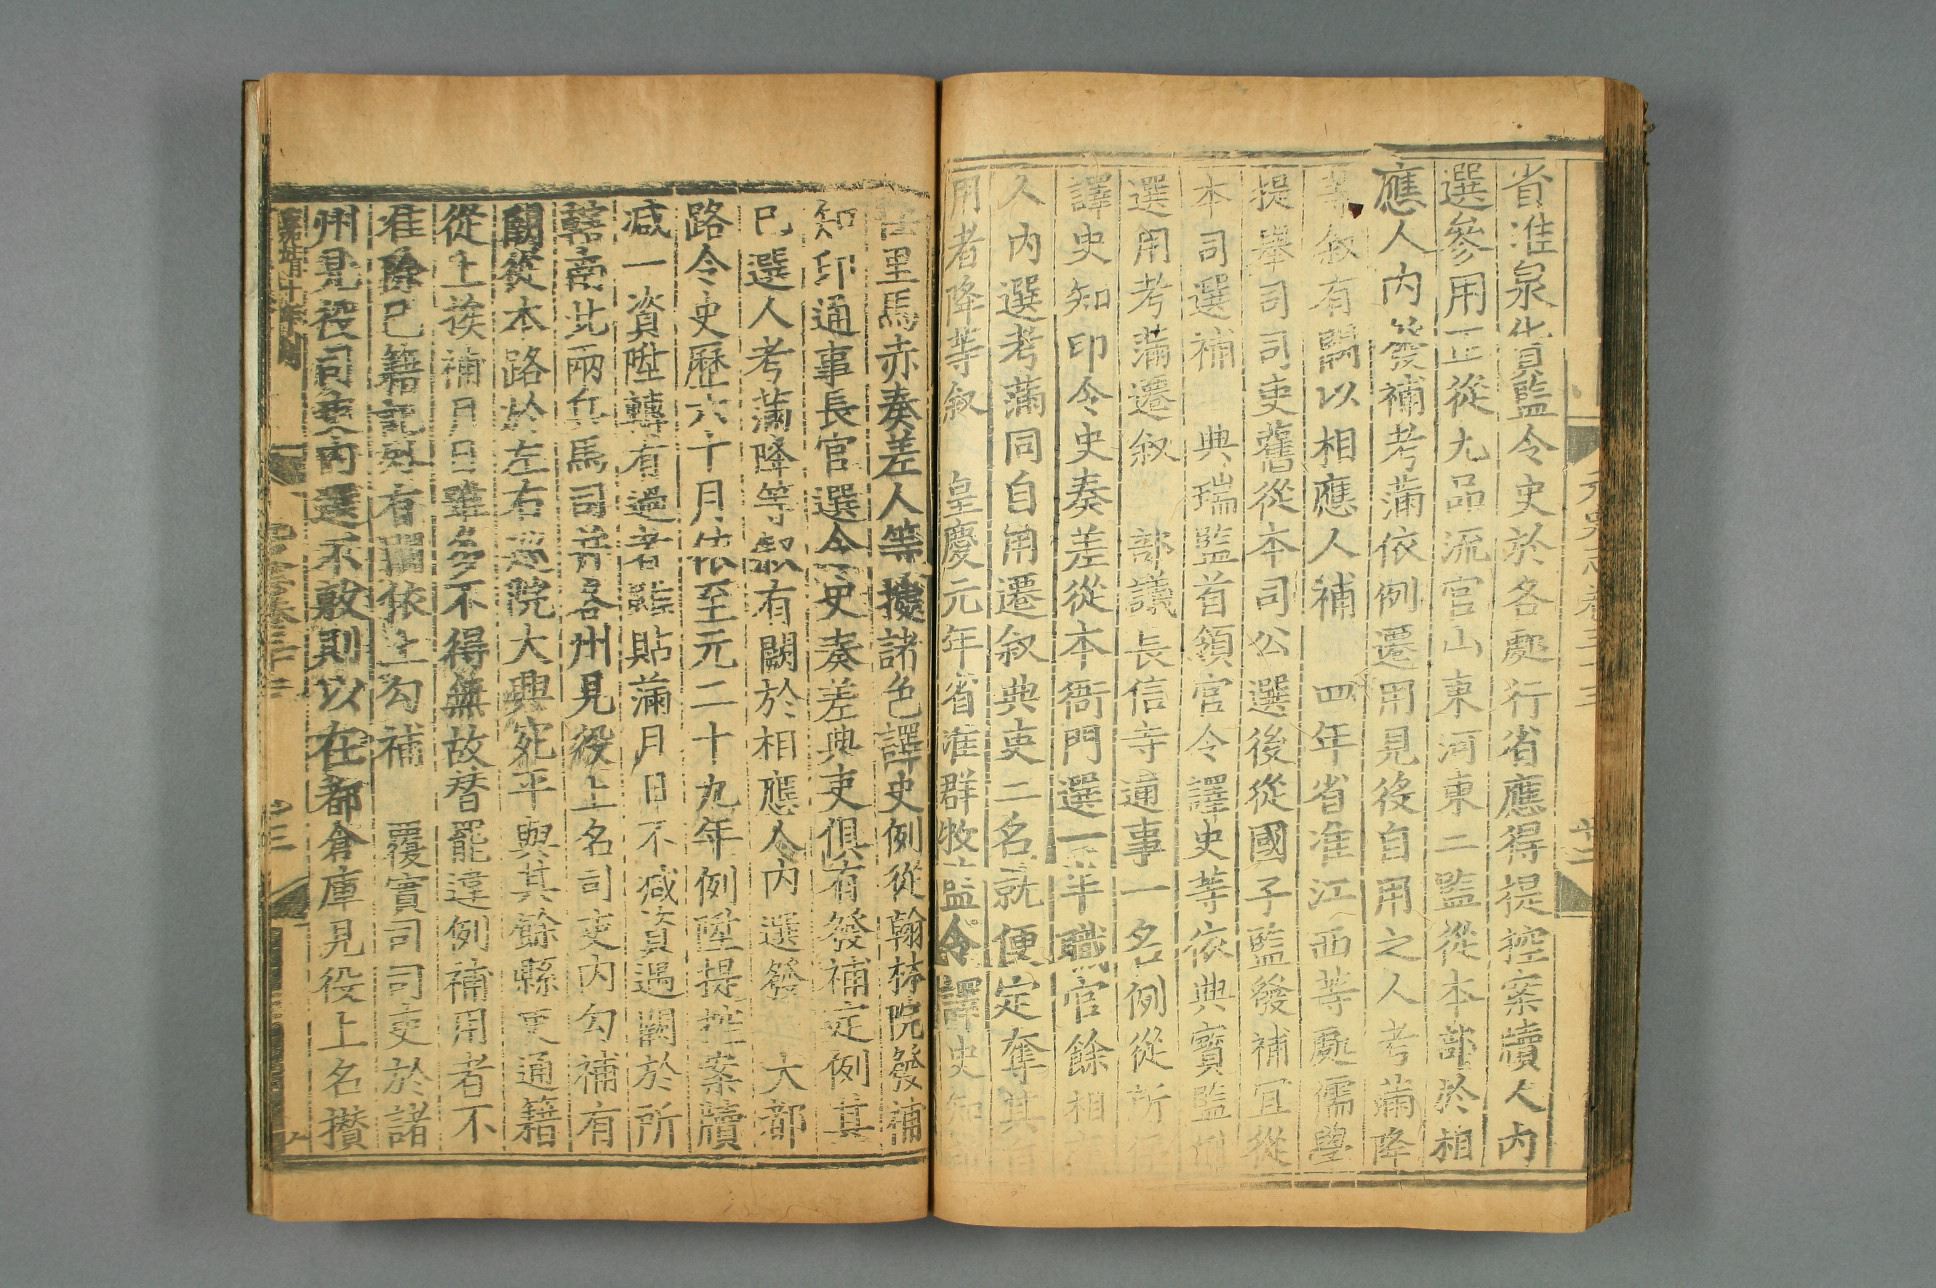 省准泉貨監令史於各處行省應得提控案牘人內
選參用正從九品流官山東河東二監從本部於相
應人內發補考滿依例遷用見役自用之人考滿降
等叙有闕以相應人補 四年省准江西等處儒學
提舉司司吏舊從本司公選後從國子監發補宜從
本司選補 典瑞監首領官令譯史等依典寶監例
選用考滿遷叙 部議長信寺通事一名例從所
譯史知印令史奏差從本衙門選一半職官餘相
人內選考滿同自用遷叙典吏二名就便定奪其
用者降等叙 皇慶元年省准群牧監令譯史知
怯里馬赤奏差人等據諸色譯史例從翰林院發補
知印通事長官選令史奏差典吏俱有發補定例其
已選人考滿降等叙有闕於相應人內選發 大都
路令史歷六十月依至元二十九年例陞提控案牘
减一資陞轉有過者雖貼滿月日不减資遇闕於所
轄南北兩兵馬司并各州見役上名司吏內勾補有
闕從本路於左右巡院大興宛平與其餘縣吏通籍
從上挨補月日雖多不得無故替罷違例補用者不
准除已籍記外有闕依上勾補 覆實司司吏於諸
州見役司吏內選不敷則以在都倉庫見役上名攢